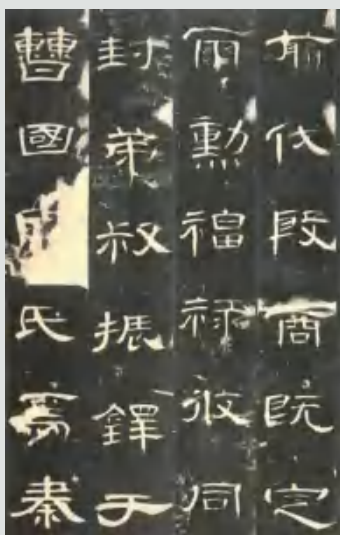 前伐殷商既定
爾勳福祿攸同
封弟叔振鐸于
曹國氏焉秦